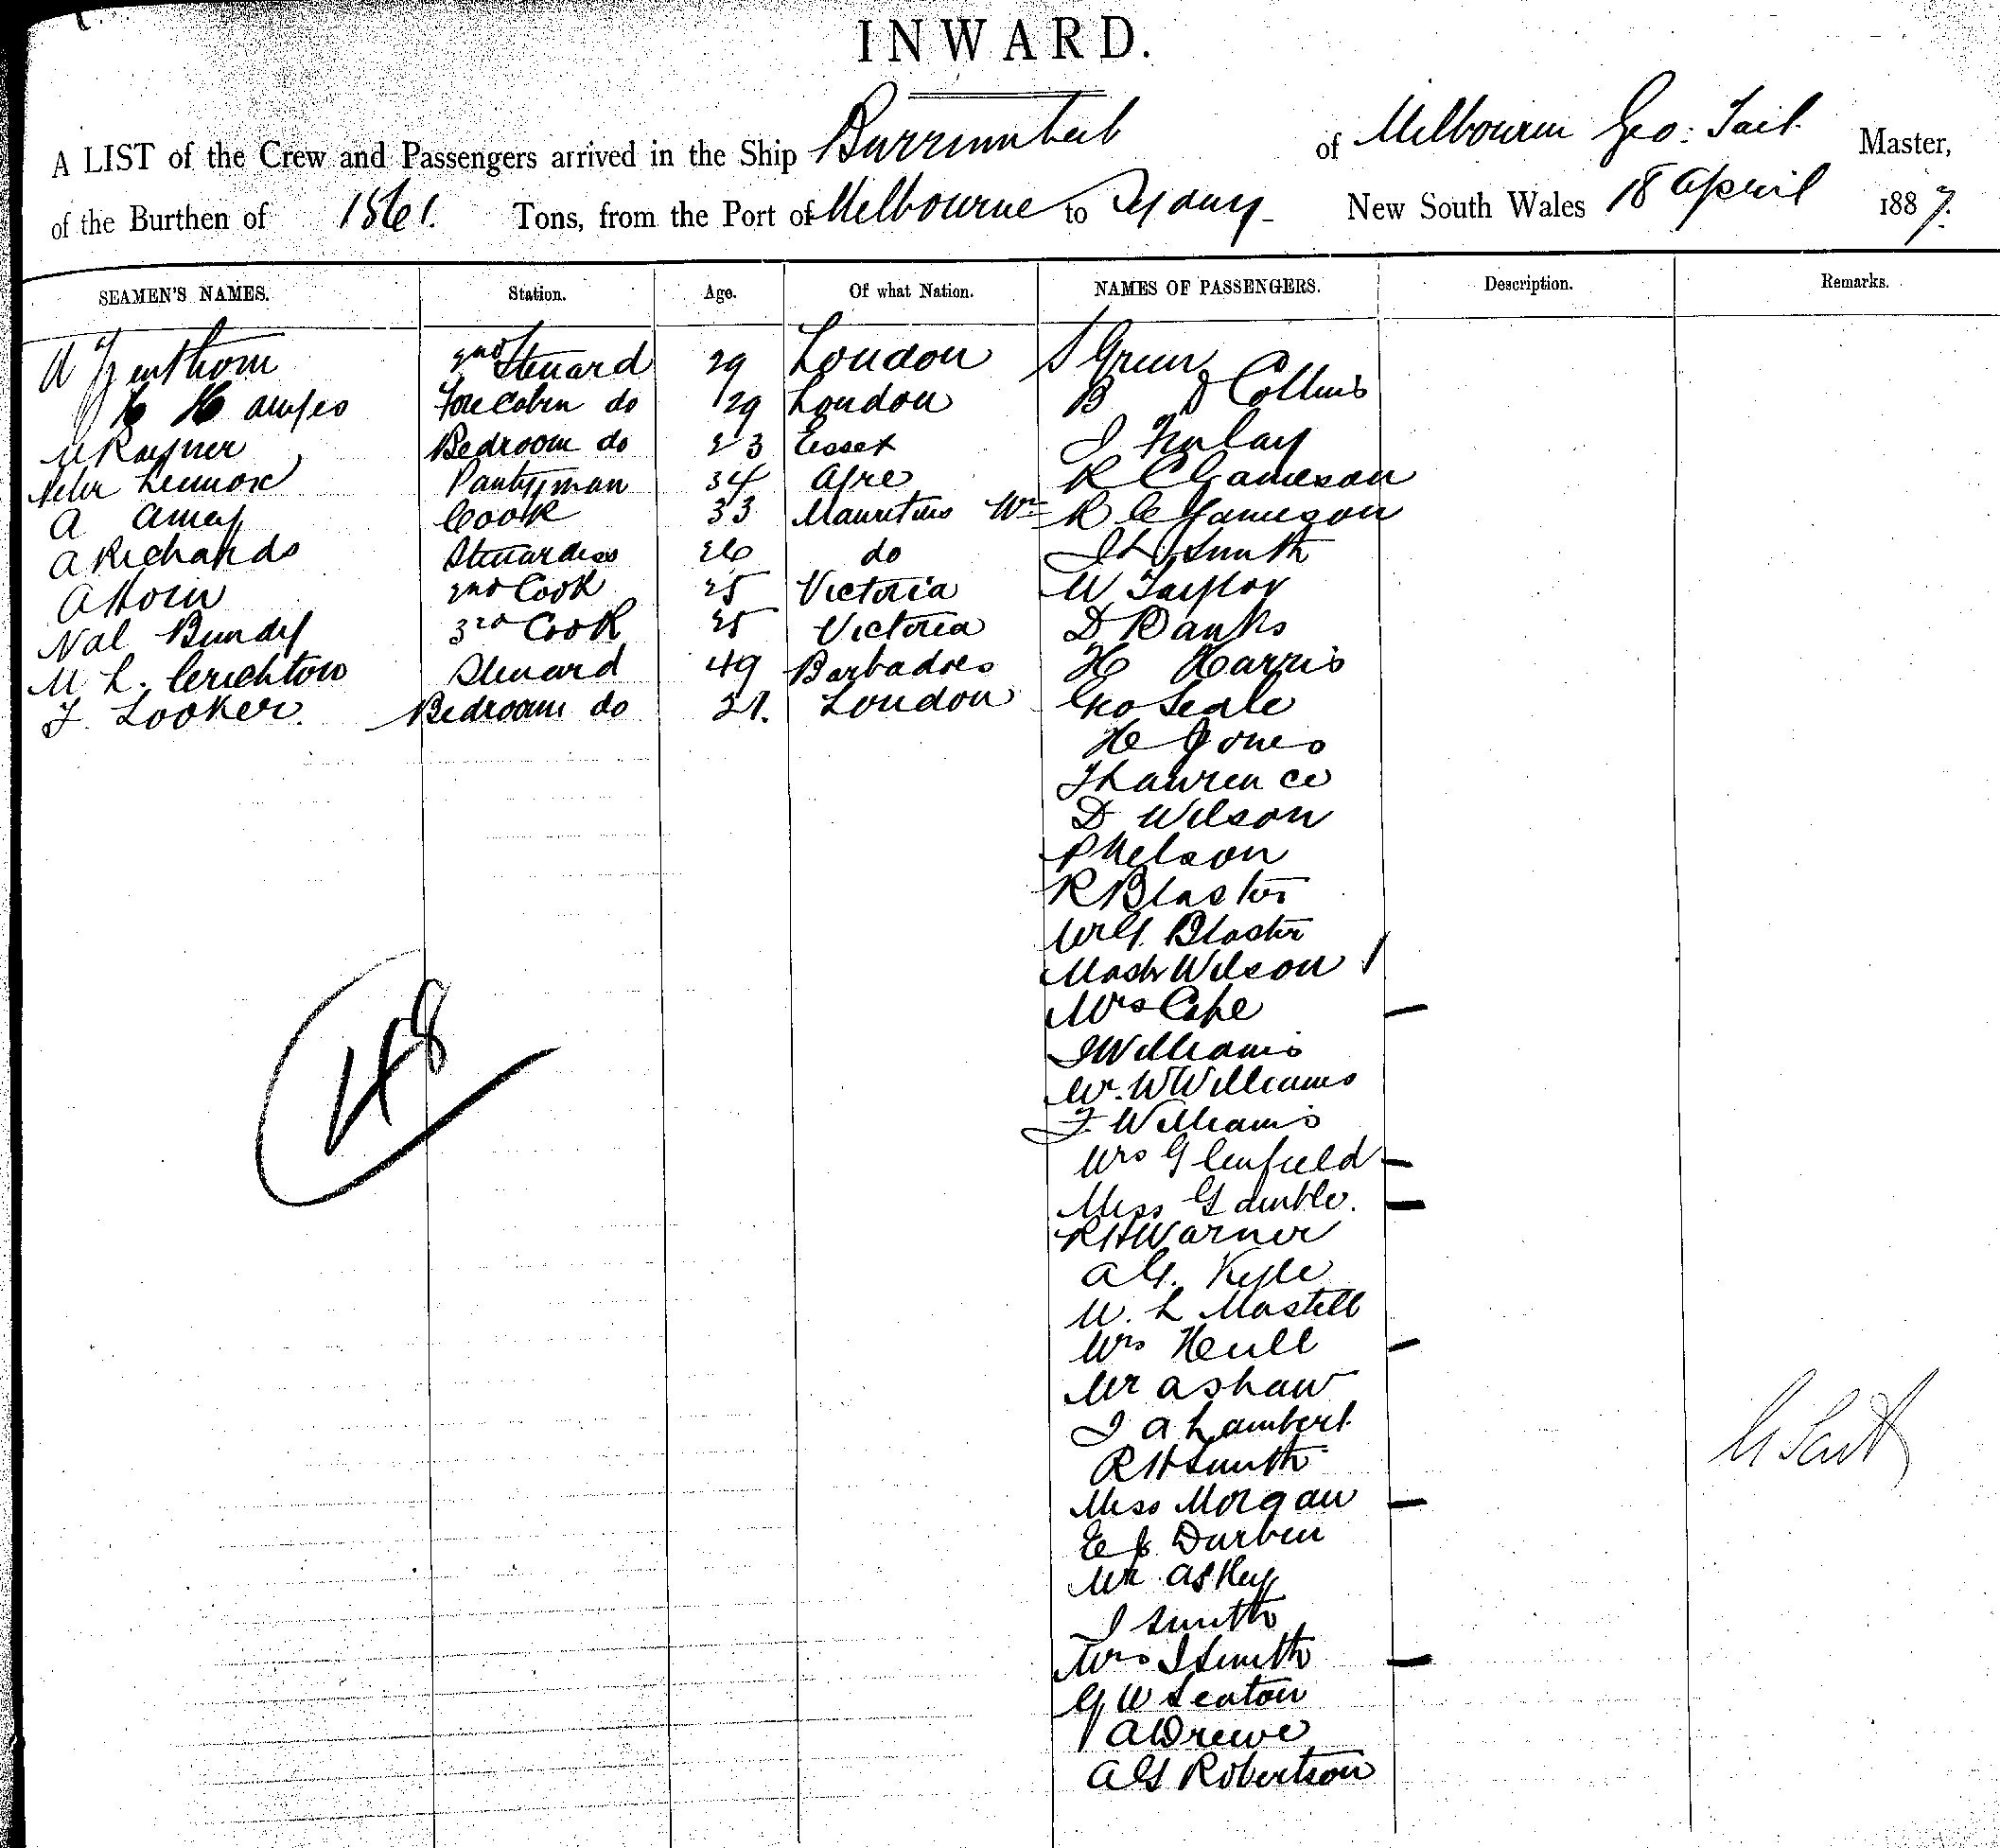 INWARD.
A LIST of the Crew and Passengers arrived in the Ship Burrumbeet of Melbourne Geo: Tait Master,
of the Burthen of Tons, from the Port of Melbourne to Sydney New South Wales 18 April 1887.
SEAMEN'S NAMES. Station. Age. Of what Nation. NAMES OF PASSENGERS. Description. Remarks.
2nd Steward 29 London S Green
Fore Cabin do 29 London B D Collins
M Rayner Bedroom do 23 Essex J Finlay
Peter Lennox Pantryman 34 R C Jameson
A Amey Cook 33 Mauritius Wm R C Jameson
A Richards Stewardess 26 do J L Smith
A Horn 2nd Cook 25 Victoria W Taylor
Nal Bundy 3rd Cook 25 Victoria D Banks
M L. Crichton Steward 49 Barbadoes H Harris
F. Looker. Bedroom do 21. London Geo Seale
H Jones
T Lawrence
D Wilson
P Nelson
R Blaster
W G. Blaster
Mastr Wilson 1
Mrs Cape
J Williams
W. W Williams
F. Williams
Mrs Glenfield
Miss Gamble.
R H Warner
A G. Kyle
W. L Mastell
Mrs Heull
Mr A Shaw
J A Lambert
R H Smith
Miss Morgan
E J. Durbin
Mr Askey
J Smith
Mrs J Smith
G W Seaton
A Drewe
A G Robertson
48
G Tait